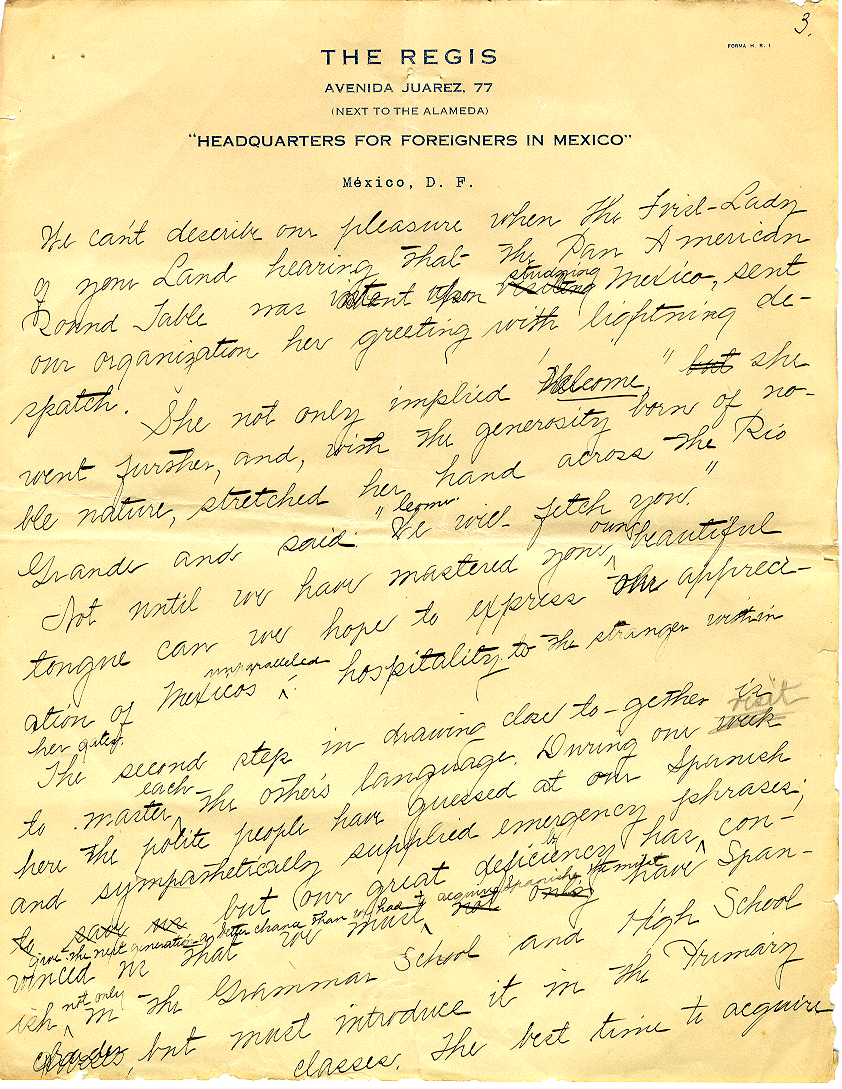 3.
FORMA H. R. 1
THE REGIS
AVENIDA JUAREZ, 77
(NEXT TO THE ALAMEDA)
"HEADQUARTERS FOR FOREIGNERS IN MEXICO"
México, D. F.
We can't describe our pleasure when the First-Lady
of your Land hearing that the Pan American
studying
Round Table was intent upon visiting Mexico, sent
our organization her greeting with lightning de-
spatch. She not only implied "Welcome," but she
went further, and, with the generosity born of no-
ble nature, stretched her hand across the Rio
Grande and said: "Come. We will fetch you."
own
Not until we have mastered your beautiful
tongue can we hope to express our appreci-
unparalleled
ation of Mexicos hospitality to the stranger within
her gates.
The second step in drawing close to-gether is
visit
each
to master the other's language. During our week
here the polite people have guessed at our Spanish
and sympathetically supplied emergency phrases;
but our great deficiency has con-
to give the next generation a better chance than we had to acquire Spanish we must
vinced us that we must not only have Span-
not only
ish in the Grammar School and High School
grades, but must introduce it in the Primary
classes. The best time to acquire